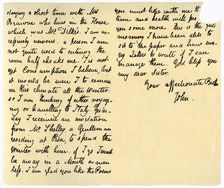 staying a short time with Mrs
Brawne who lives in the House
which was Mrs Dilke's. I am ex-
cessively nervous: a person I am
not quite used to entering the
room half choaks me. 'Tis not
yet Consumption I believe, but
it would be were I to remain
in this climate all the Winter:
so I am thinking of either voya-
ging or travelling to Italy. Yester-
day I received an invitation
from Mr Shelley, a Gentleman
residing at Pisa, to spend the
Winter with him: if I go I must
be away in a Month or even
less. I am glad you like the Poems
you must hope with me that
time and health will pro-
you some more. This is the
morning I have been able to
sit to the paper and have many
Letters to write if I can
manage them. God bless you
my dear Sister.
Your affectionate Brother
John